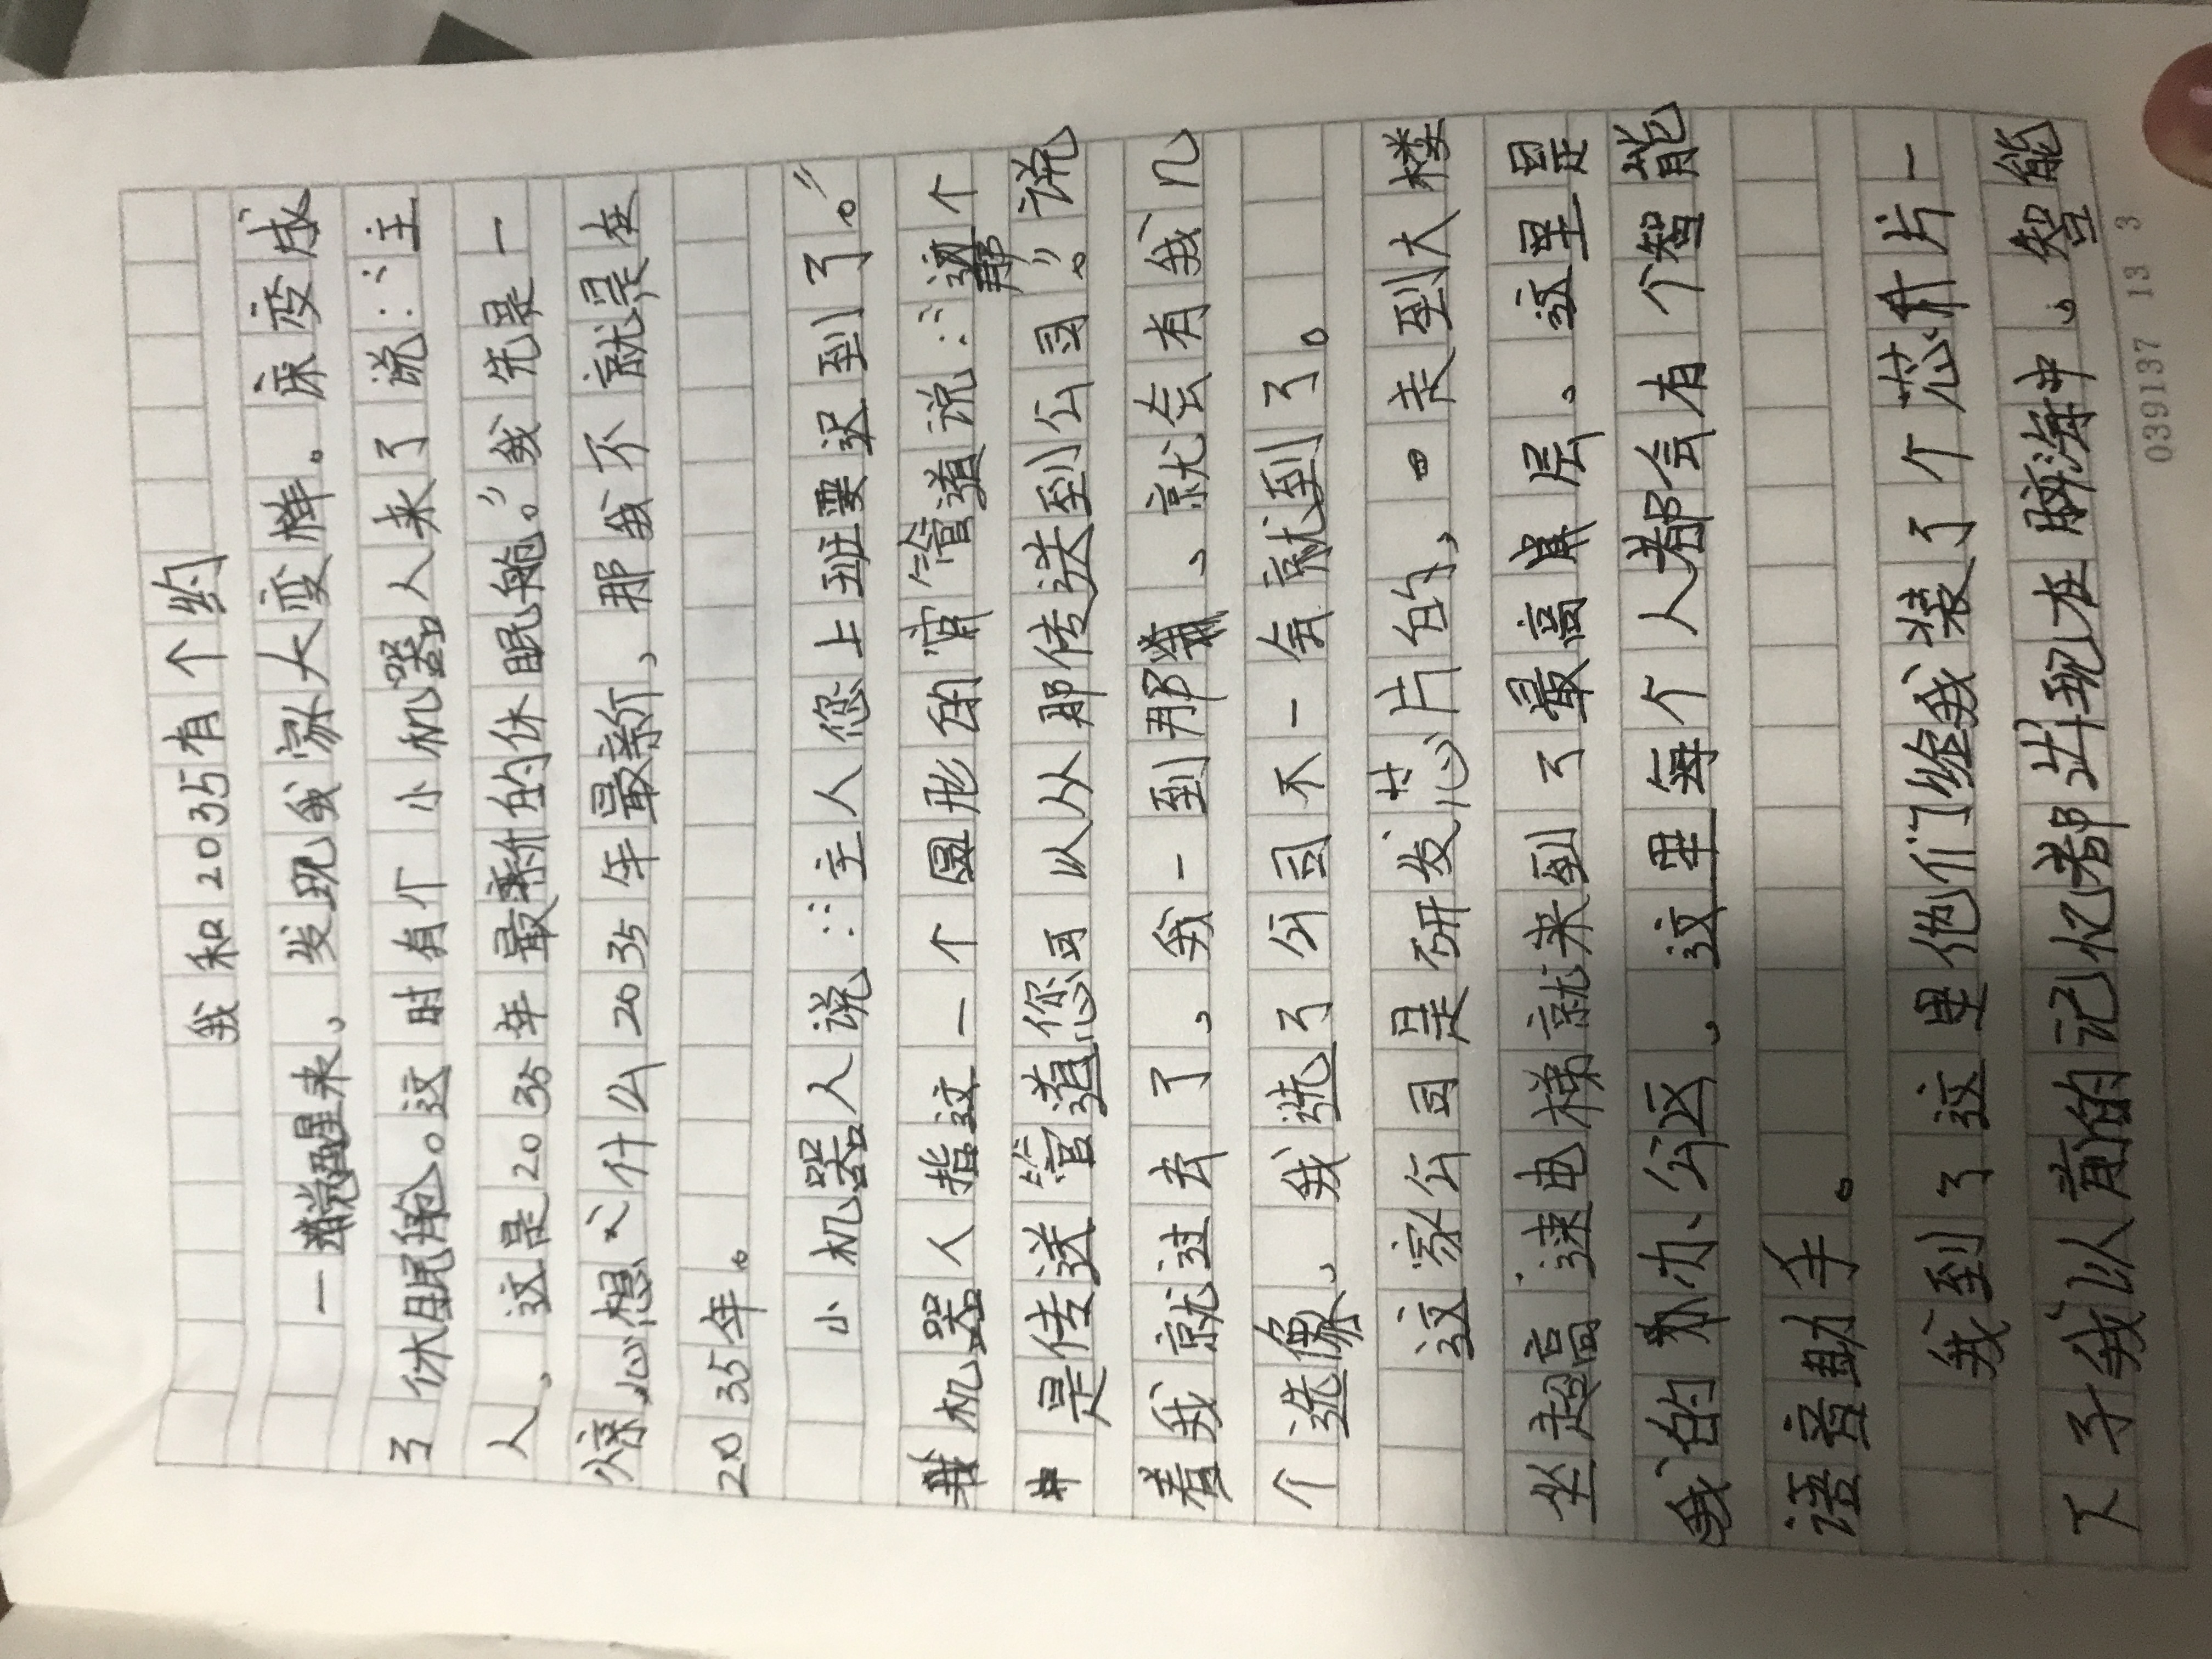 我和2035有个约
一觉醒来，发现我家大变样。床变成
了休眠舱。这时有个小机器人来了说：“主
人，这是2035年最新的休眠舱。”我先是一
惊，心想：什么2035年最新，那我不就是在
2035年。
小机器人说：“主人您上班要迟到了。”
机器人指这一个圆形的管道说：“那个
是传送管道您可以从那传送到公司。”说
着我就过去了，我一到那，就会有我几
个选像，我选了公司不一会就到了。
这家公司是研发芯片的，走到大楼
坐超高速电梯就来到了最高层。这里是
我的办公区，这里每个人都会有个智能
语音助手。
我到了这里他们给我装了个芯片一
下子我以前的记忆都出现在脑海中。智能
0391137 13 3